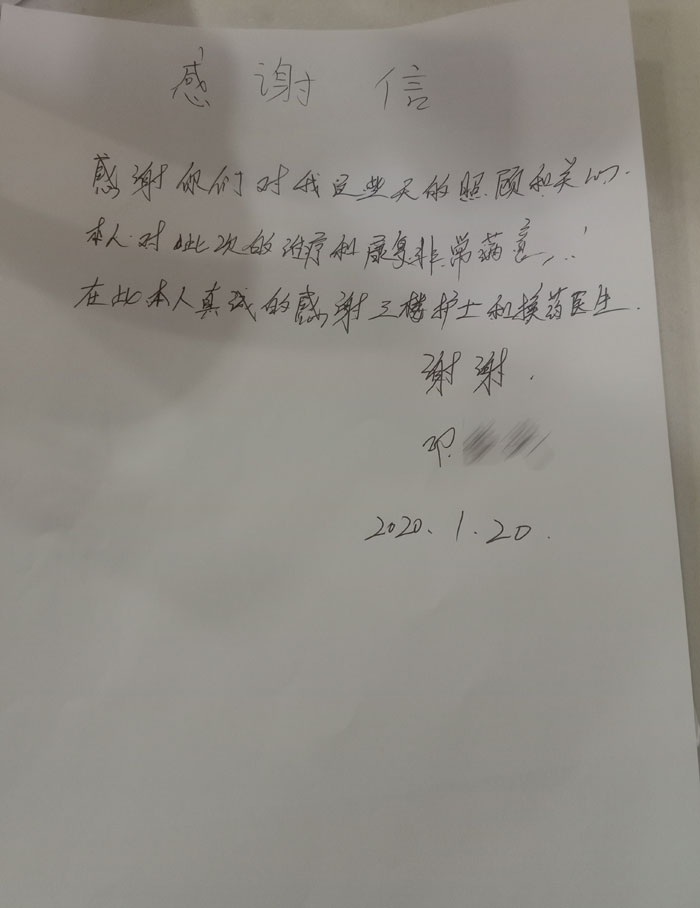 感谢信
感谢你们对我这些天的照顾和关心.
本人对此次的治疗和康复非常满意,
在此本人真诚的感谢三楼护士和换药医生.
谢谢.
2020.1.20.